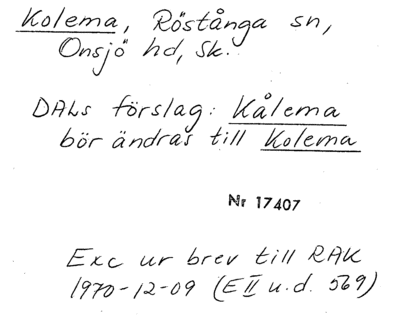 Kolema, Röstånga sn,
Onsjö hd, Sk.
DALs förslag: Kålema
bör ändras till Kolema
Nr 17407
Exc ur brev till RAK
1970-12-09 (E II u.d. 569)